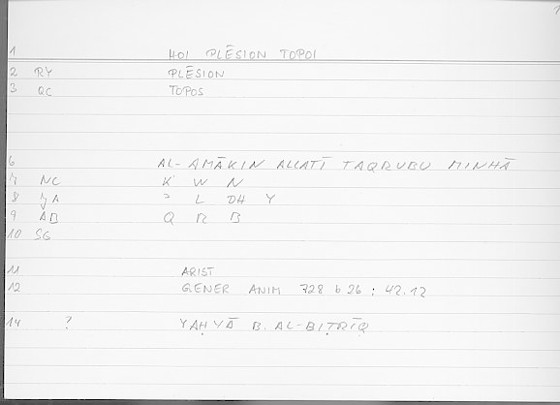 1 HOI PLĒSION TOPOI
2 RY PLĒSION
3 QC TOPOS
6 AL-AMĀKIN ALLATĪ TAQRUBU MINHĀ
7 NC K W N
8 JA ʾ L DH Y
9 AB Q R B
10 SG
11 ARIST
12 GENER ANIM 728 b 26 : 42.12
14 ? YAḤYĀ B. AL-BIṬRĪQ